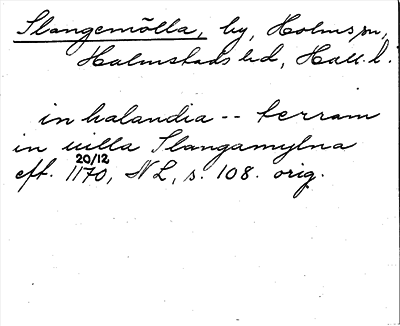 Slangemölla, by, Holms sn,
Halmstads hd, Hall. l.
in halandia -- terram
in uilla Slangamylna
eft. 20/12 1170, NL, s. 108. orig.